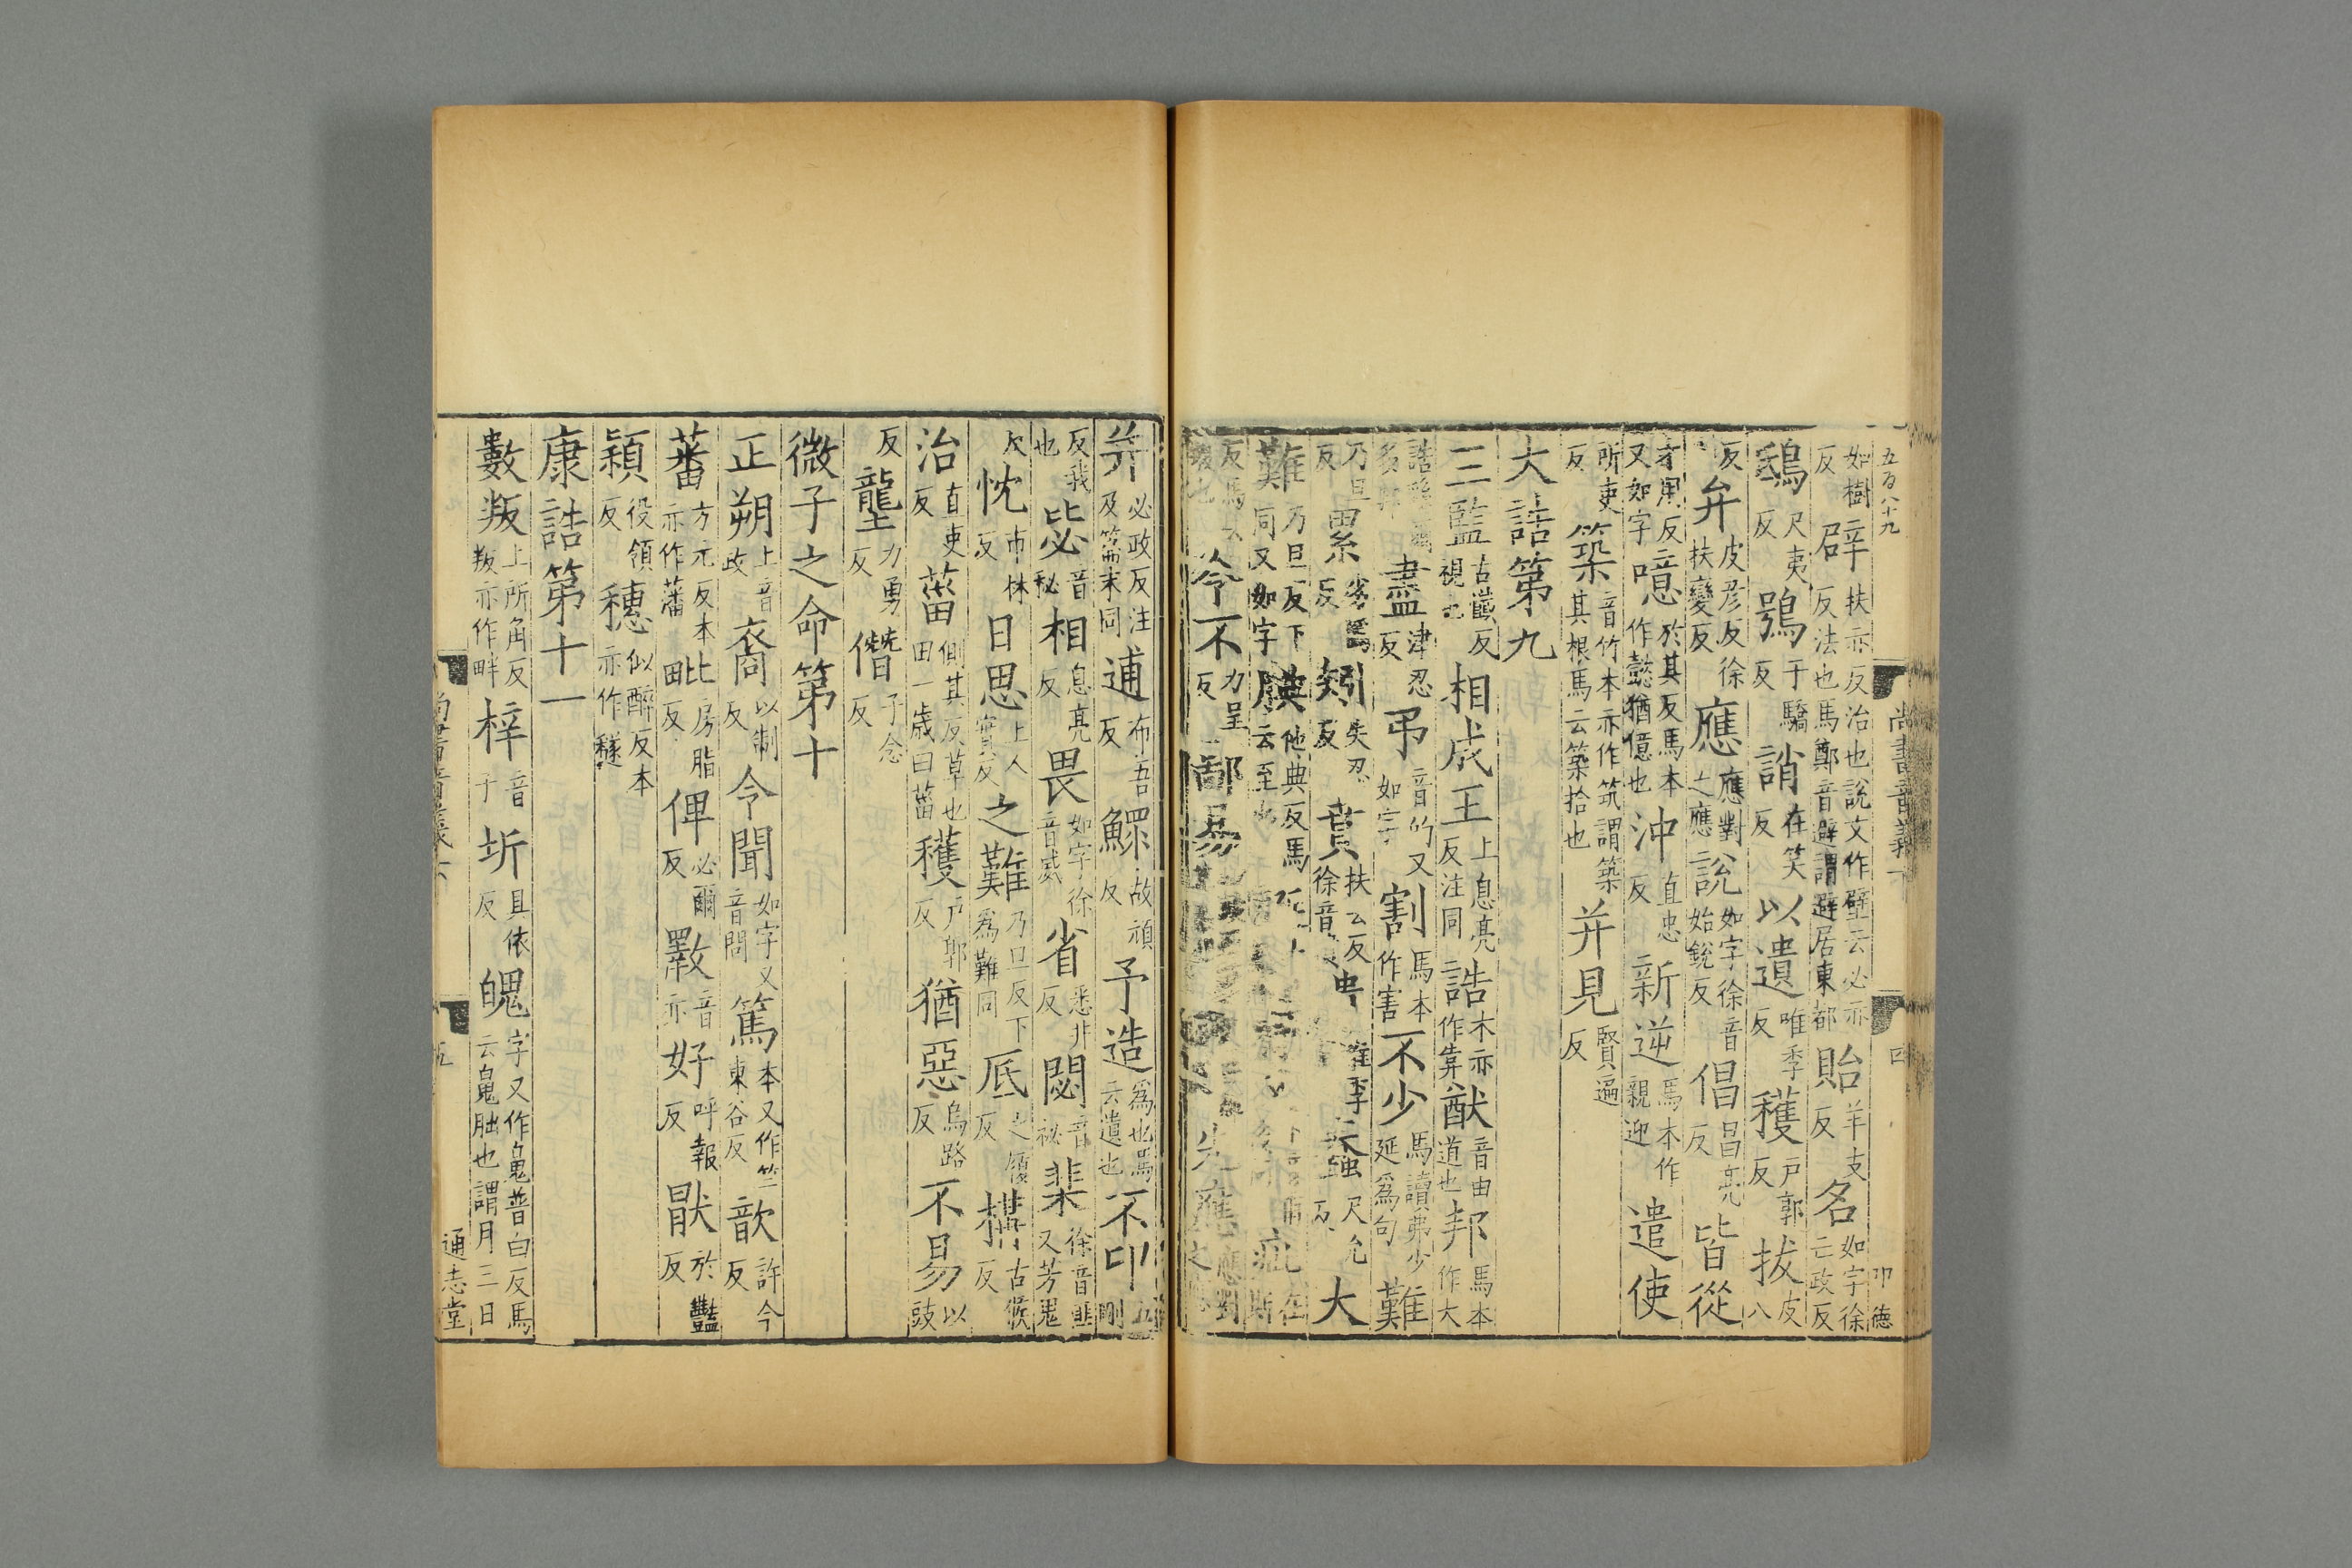 五百八十九
尚書音義下 四 卬德
如樹反 辟扶亦反治也說文作壁云必亦反法也馬鄭音避謂避居東都 貽羊支反 名如字徐亡政反
鴟尺夷反 鴞于驕反 誚在笑反 以遺唯季反 穫戶郭反 拔皮八
反 弁皮彥反徐扶變反 應應對之應 說如字徐音始銳反 倡昌亮反 皆從
才用反又如字 噫於其反馬本作懿猶億也 沖直忠反 新逆馬本作親迎 遣使
所吏反 築音竹本亦作筑謂築其根馬云築拾也 并見賢遍反
大誥第九
三監古懺反視也 相成王上息亮反注同 誥本亦作𢍎 猷音由道也 邦馬本作大
誥 盡津忍反 弔音的又如字 割馬本作害 不少馬讀弗少延為句 難
乃旦反 累劣偽反 矧失忍反 賁扶云反徐音 蠢尺允反 大
難乃旦反下同又如字 腆他典反馬云至也 疵在斯
反馬 令不力呈反 鄙易 先應應對之應
并必政反注及篇末同 逋布吾反 鰥故頑反 予造為也馬云遺也 不卬五剛
反我也 毖音祕 相息亮反 畏如字徐音威 省悉井反 閟音祕 棐徐音匪又芳鬼
反 忱市林反 日思上人實反 之難乃旦反下為難同 厎之履反 構古候
反 治直吏反 菑側其反草也田一歲曰菑 穫戶郭反 猶惡烏路反 不易以豉
反 壟力勇反 僭子念反
微子之命第十
正朔上音政 裔以制反 令聞如字又音問 篤本又作竺東谷反 歆許今反
蕃方元反本亦作藩 毗房脂反 俾必爾反 斁音亦 好呼報反 厭於豔反
穎役領反 穗似醉反本亦作穟
康誥第十一
數叛上所角反叛亦作畔 梓音子 圻且依反 魄字又作𩲸普白反馬云𩲸朏也謂月三日
尚書音義下 五 通志堂